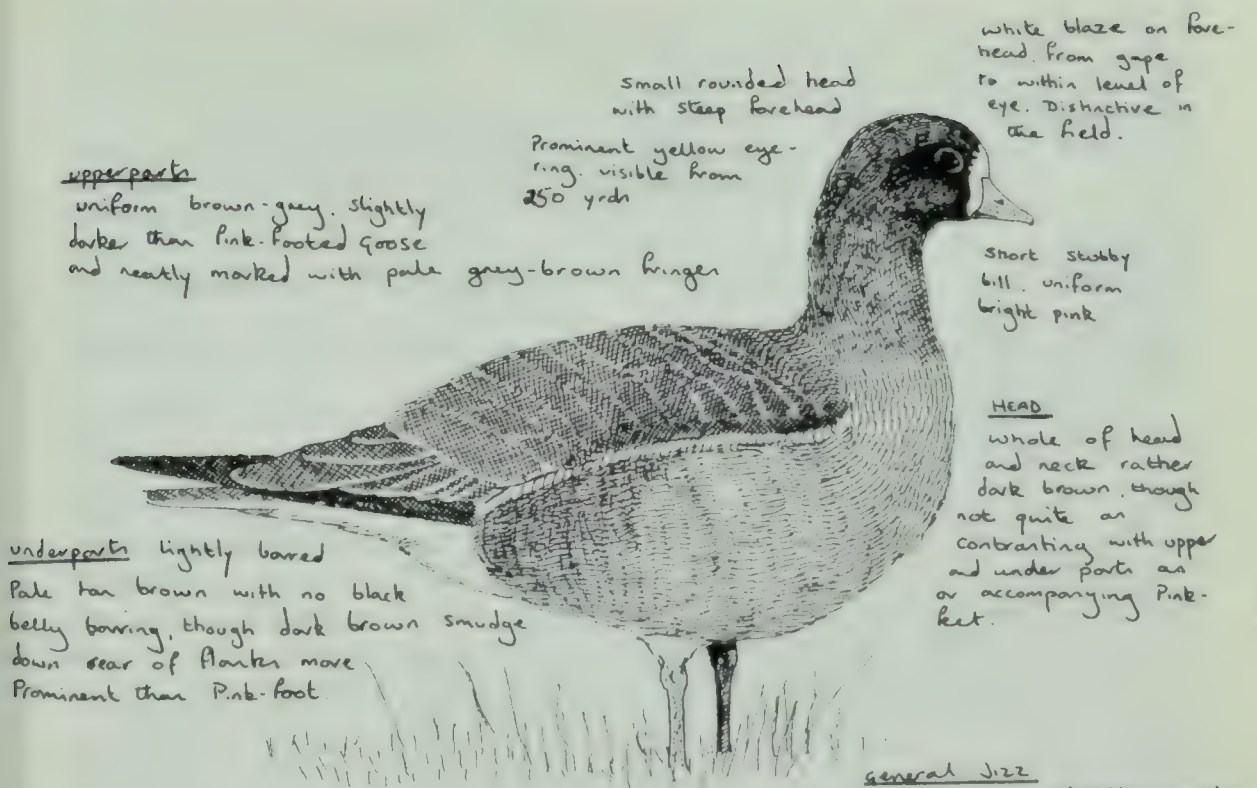 white blaze on fore-
head. from gape
to within level of
eye. Distinctive in
the field.
small rounded head
with steep forehead
Prominent yellow eye-
ring. visible from
250 yrds
upperparts
uniform brown-grey. slightly
darker than Pink-footed Goose
and neatly marked with pale grey-brown fringes
short stubby
bill. uniform
bright pink
HEAD
whole of head
and neck rather
dark brown, though
not quite as
contrasting with upper
and under parts as
on accompanying Pink-
feet.
underparts lightly barred
Pale tan brown with no black
belly barring, though dark brown smudge
down rear of flanks more
Prominent than Pink-foot
General Jizz